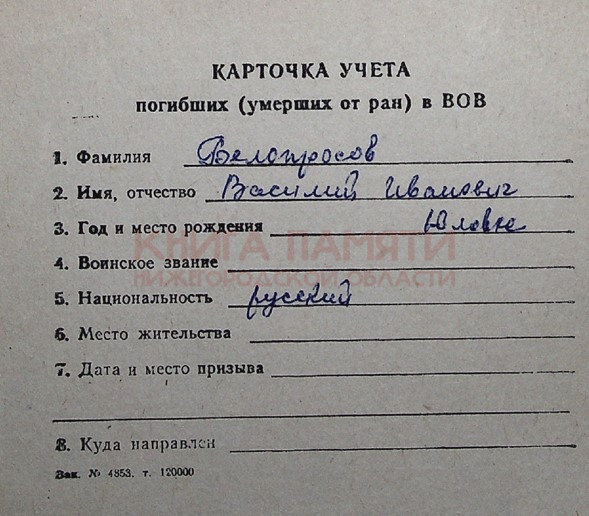 КАРТОЧКА УЧЕТА
погибших (умерших от ран) в ВОВ
1. Фамилия Белопросов
2. Имя, отчество Василий Иванович
3. Год и место рождения Юловка
КНИГА ПАМЯТИ
4. Воинское звание
НИЖЕГОРОДСКОЙ ОБЛАСТИ
5. Национальность русский
6. Место жительства
7. Дата и место призыва
8. Куда направлен
Зак. № 4853. т. 120000